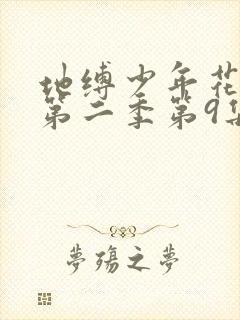 地缚少年花
第二季第9集
夢殤之夢